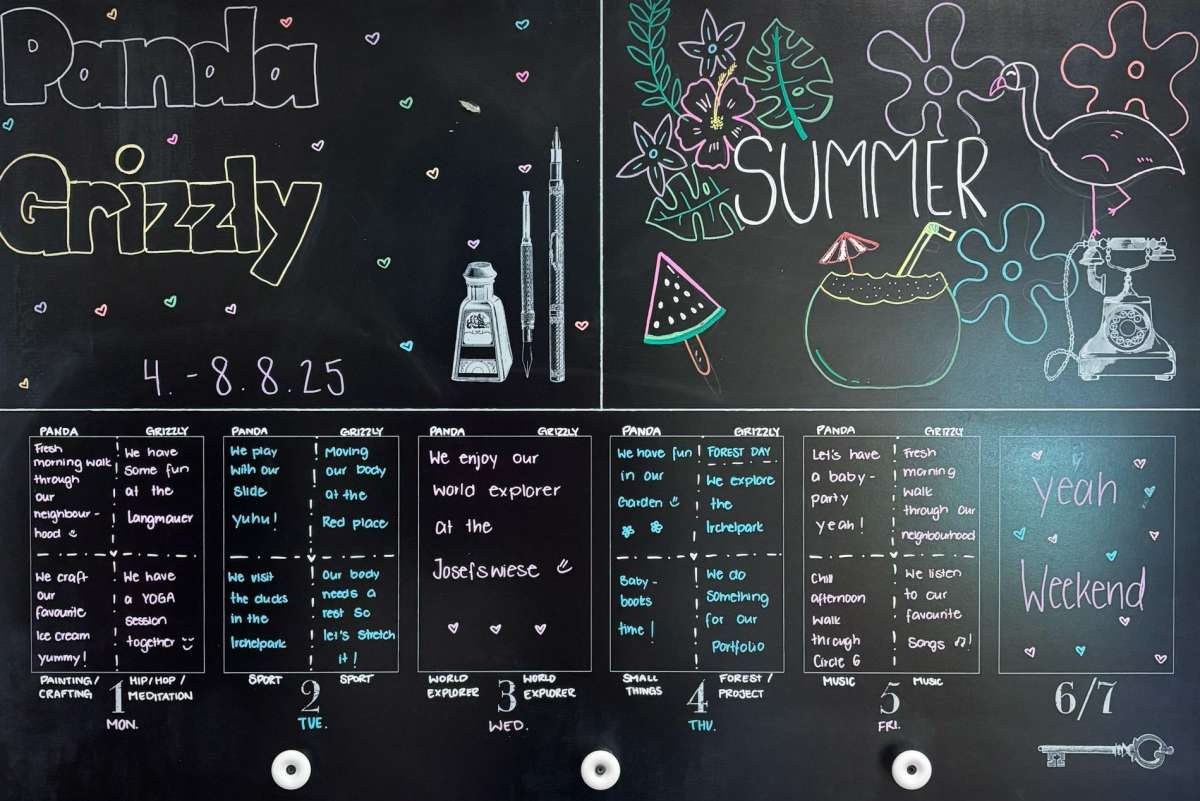 Panda
Grizzly
4. - 8.8.25
SUMMER
PANDA
Fresh
morning walk
through
our
neighbour -
hood
We craft
our
favourite
Ice cream
yummy!
GRIZZLY
We have
some fun
at the
Langmauer
We have
a YOGA
session
together
PAINTING/
CRAFTING
HIP/HOP/
MEDITATION
1
MON.
PANDA
We play
with our
slide
yuhu!
We visit
the ducks
in the
Irchelpark
GRIZZLY
Moving
our body
at the
Red place
Our body
needs a
rest so
let's stretch
it!
SPORT
SPORT
2
TUE.
PANDA
GRIZZLY
We enjoy our
world explorer
at the
Josefswiese
WORLD
EXPLORER
WORLD
EXPLORER
3
WED.
PANDA
We have fun
in our
Garden
Baby -
books
time!
GRIZZLY
FOREST DAY
We explore
the
Irchelpark
We do
something
for our
Portfolio
SMALL
THINGS
FOREST/
PROJECT
4
THU.
PANDA
Let's have
a baby -
party
yeah!
Chill
afternoon
walk
through
Circle 6
GRIZZLY
Fresh
morning
walk
through our
neighbourhood
We listen
to our
favourite
Songs ♫!
MUSIC
MUSIC
5
FRI.
yeah
Weekend
6/7